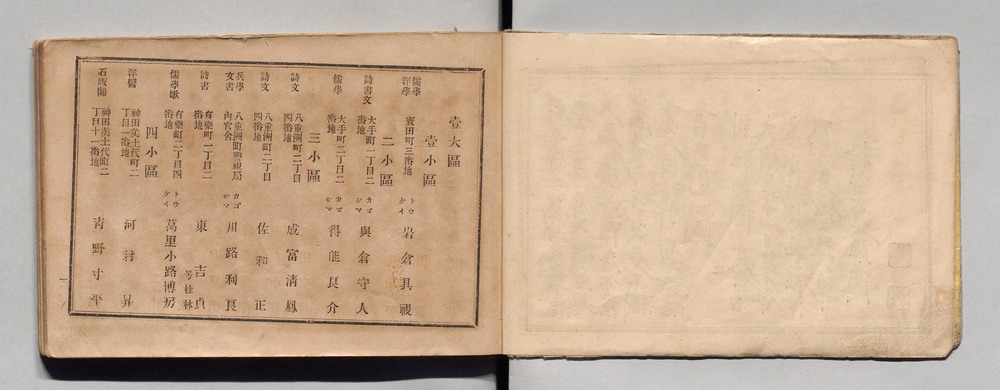 壹大區
壹小區
儒學 洋學 寳田町三番地 トウケイ 岩倉具視
二小區
詩書文 大手町一丁目二番地 カゴシマ 與倉守人
儒學 大手町二丁目二番地 カゴシマ 得能良介
三小區
詩文 八重洲町二丁目四番地 成富清風
詩文 八重洲町二丁目四番地 佐和正
兵學 文書 八重洲町警視局內官舍 カゴシマ 川路利良
詩書 有樂町一丁目二番地 東吉貞 号桂林
儒學歌 有樂町二丁目四番地 トウケイ 萬里小路博房
四小區
洋醫 神田美土代町二丁目一番地 河村昇
石版師 神田美土代町二丁目十一番地 靑野寸平
一